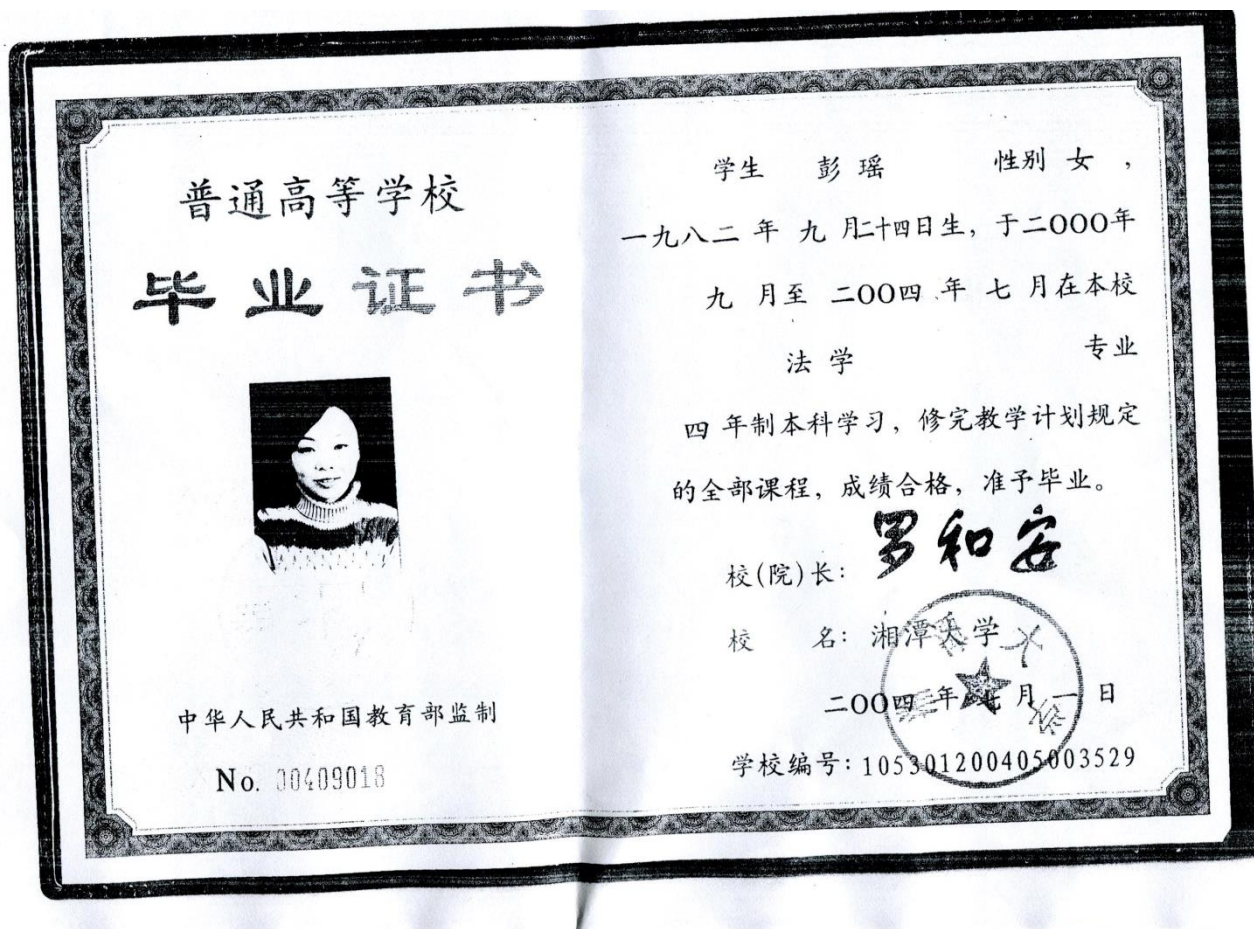 普通高等学校
毕业证书
中华人民共和国教育部监制
No. 00409018
学生 彭瑶 性别 女，
一九八二 年 九 月二十四日生，于二〇〇〇年
九 月至 二〇〇四 年 七 月在本校
法学 专业
四 年制本科学习，修完教学计划规定
的全部课程，成绩合格，准予毕业。
校(院)长：罗和安
校 名：湘潭大学
二〇〇四 年 七 月 一 日
学校编号：105301200405003529